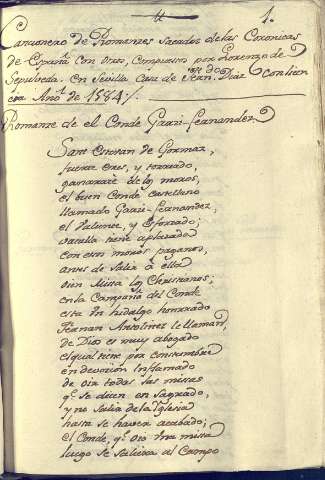 1.
Cancionero de Romanzes Sacados de las Coronicas
de España con otros, Compuesto por Lorenzo de
Sepulveda. en Sevilla Casa de Fran.co Diaz con licen
cia Año de 1584
Romanze de el Conde Garzi-fernandez
Sant Estevan de Gormaz,
fuerte eres, y torreado,
ganarate de los moros,
el buen Conde castellano
llamado Garzi-fernandez,
el valiente, y Esforzado;
vatalla tiene aplazada
con esos moros paganos,
antes de salir a ella
oien Missa los Christianos;
en la Compañia del Conde
esta un hidalgo honrrado
Fernan Antolinez le llaman,
de Dios es muy abogado
el qual tiene por costumbre
en devocion Inflamado
de oir todas las missas
q.e se dicen en sagrado,
y no salir de la Iglesia
hasta se haver acabado;
el Conde, q.e oio una missa
luego se saliera al Campo